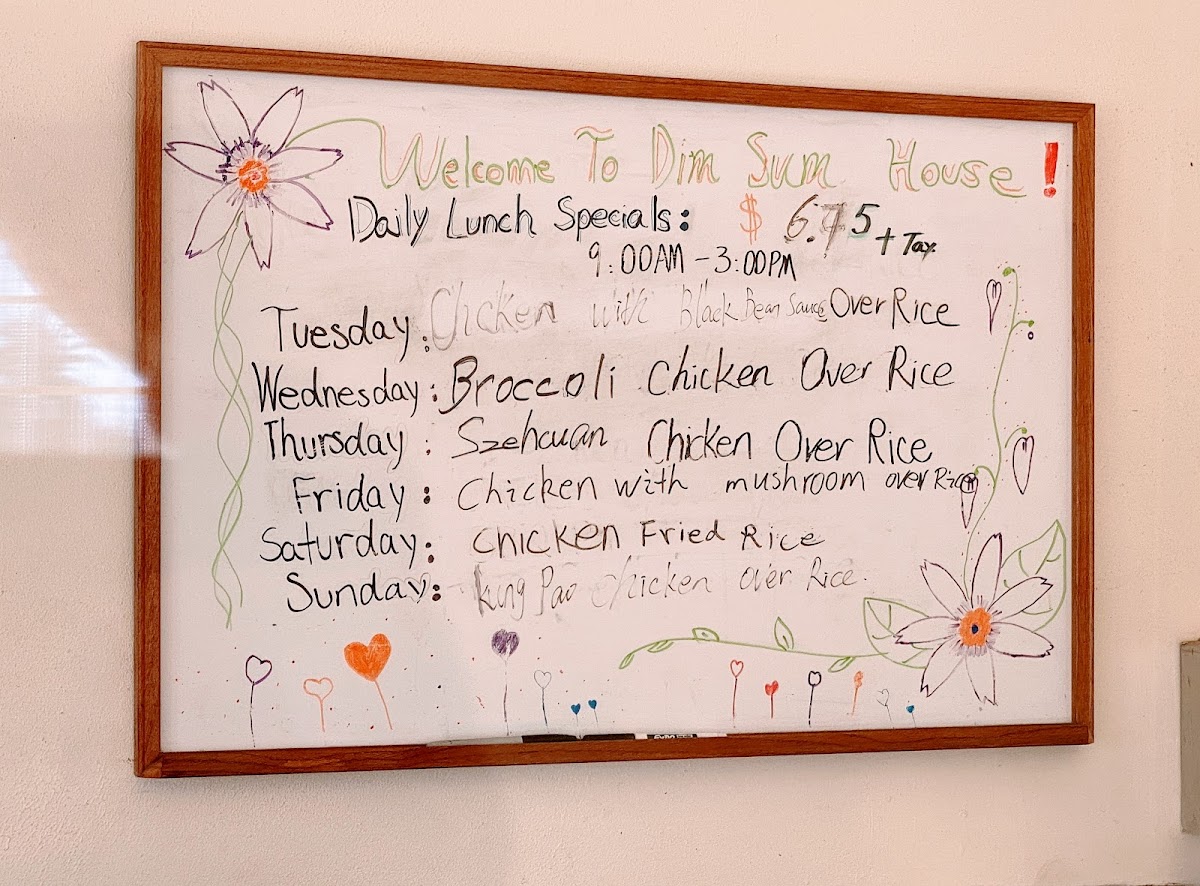 Welcome To Dim Sum House!
Daily Lunch Specials: $ 6.75 + Tax
9:00AM - 3:00PM
Tuesday: Chicken with Black Bean Sauce Over Rice
Wednesday: Broccoli Chicken Over Rice
Thursday: Szehcuan Chicken Over Rice
Friday: Chicken with mushroom over Rice
Saturday: Chicken Fried Rice
Sunday: Kung Pao Chicken over Rice.